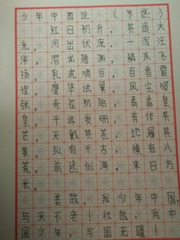 少年中国说(节选)
红日初升,其道大
光。河出伏流,一泻汪
洋。潜龙腾渊,鳞爪飞
扬。乳虎啸谷,百兽震
惶。鹰隼试翼,风尘吸
张。奇花初胎,矞矞皇
皇。干将发硎,有作其
芒。天戴其苍,地履其
黄。纵有千古,横有八
荒。前途似海,来日方
长。
美哉!我少年中国,
与天不老!壮哉!我中国
少年,与国无疆!